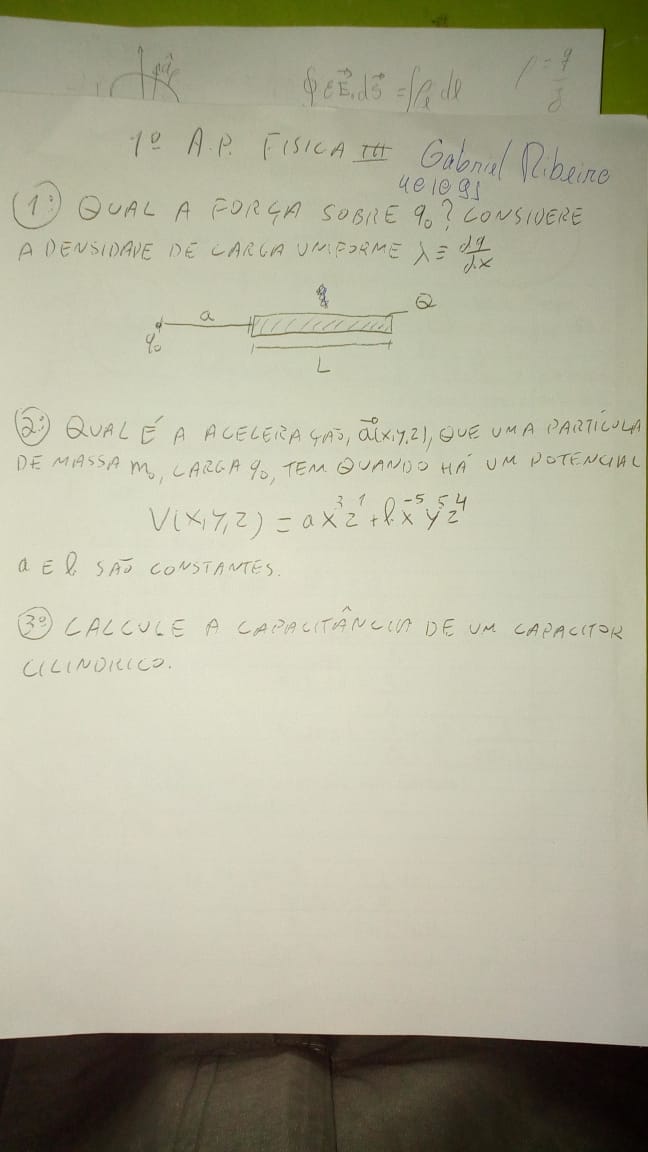 ∮εE⃗.dS⃗ = ∫ρₗ dl
1º A.P. FISICA III Gabriel Ribeiro
1º QUAL A FORÇA SOBRE q₀? CONSIDERE
A DENSIDADE DE CARGA UNIFORME λ ≡ dq/dx
a
Q
q₀
L
2º QUAL É A ACELERAÇÃO, a⃗(x,y,z), QUE UMA PARTÍCULA
DE MASSA m₀, CARGA q₀, TEM QUANDO HÁ UM POTENCIAL
V(x,y,z) = ax³z¹ + bx⁻⁵y⁵z⁴
a E b SÃO CONSTANTES.
3º CALCULE A CAPACITÂNCIA DE UM CAPACITOR
CILINDRICO.